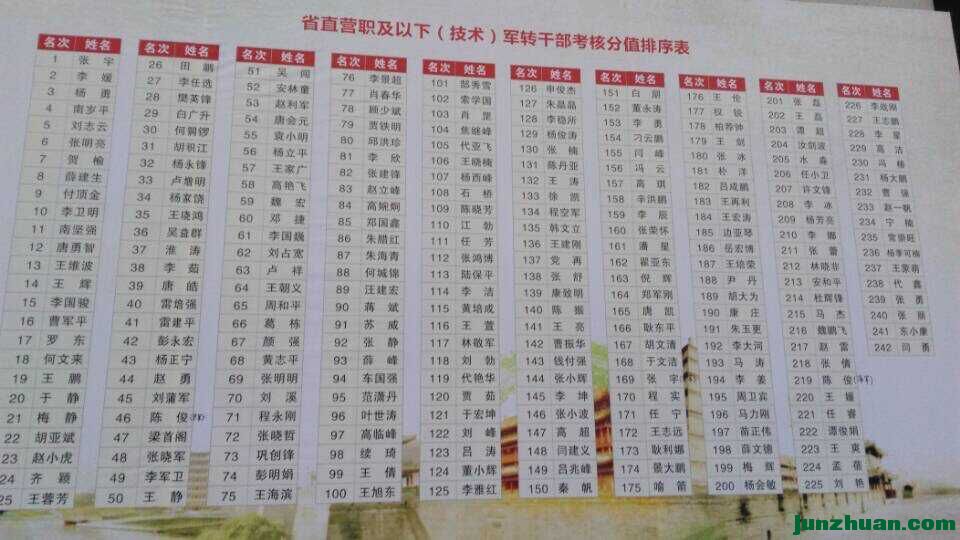 省直营职及以下（技术）军转干部考核分值排序表
名次 姓名
1 张宇
2 李媛
3 杨勇
4 南岁平
5 刘志云
6 张明亮
7 贺榆
8 薛建生
9 付顶金
10 李卫明
11 南坚强
12 唐勇智
13 王维波
14 王辉
15 李国骏
16 曹军平
17 罗东
18 何文来
19 王鹏
20 于静
21 梅静
22 胡亚斌
23 赵小虎
24 齐颖
25 王蓉芳
名次 姓名
26 田鹏
27 李任选
28 樊英锋
29 白广升
30 何鹏锣
31 胡积江
32 杨永锋
33 卢增明
34 杨家饶
35 王晓鸿
36 吴益群
37 淮涛
38 李茹
39 唐皓
40 雷培强
41 雷建平
42 彭永宏
43 杨正宁
44 赵勇
45 刘蒲军
46 陈俊
47 梁首阁
48 张晓军
49 李军卫
50 王静
名次 姓名
51 吴闯
52 安林童
53 赵利军
54 唐会元
55 袁小明
56 杨立平
57 王家广
58 高艳飞
59 魏宏
60 邓捷
61 李国巍
62 刘占宽
63 卢祥
64 王朝义
65 周和平
66 葛栋
67 颜强
68 黄志平
69 张明明
70 刘溪
71 程永刚
72 张晓哲
73 巩创锋
74 彭明娟
75 王海滨
名次 姓名
76 李景超
77 肖春华
78 顾少斌
79 贾铁明
80 邱洪珍
81 李欣
82 张建锋
83 赵立峰
84 高婉炯
85 郑国鑫
86 朱腊红
87 朱海青
88 何城锦
89 汪建宏
90 蒋斌
91 苏威
92 张静
93 薛峰
94 车国强
95 范潇丹
96 叶世涛
97 高临峰
98 续琦
99 王倩
100 王旭东
名次 姓名
101 郜秀雪
102 索学国
103 肖罡
104 焦继峰
105 代亚飞
106 王晓楠
107 杨西峰
108 石桥
109 陈晓芳
110 江勃
111 任芳
112 张鸿博
113 陆保平
114 李洁
115 黄培成
116 王萱
117 林敬军
118 刘勃
119 代艳华
120 贾茹
121 于宏坤
122 刘峰
123 吕涛
124 董小辉
125 李雅红
名次 姓名
126 申俊杰
127 朱晶晶
128 李稳所
129 杨俊涛
130 张楠
131 陈丹亚
132 王涛
133 徐凯
134 程空军
135 韩文立
136 王建刚
137 党再
138 张舒
139 康致明
140 陈振
141 王亮
142 曹振华
143 钱付强
144 张小辉
145 李坤
146 张小波
147 高超
148 闫建文
149 吕兆峰
150 秦帆
名次 姓名
151 白朋
152 董永涛
153 李勇
154 刁云鹏
155 闫峰
156 冯云
157 高琪
158 辛洪鹏
159 李辰
160 张荣怀
161 潘星
162 翟亚东
163 倪辉
164 郑军刚
165 唐凯
166 耿东平
167 胡文清
168 于文洁
169 张宇
170 程实
171 任宁
172 王志远
173 耿利娜
174 景大鹏
175 喻箭
名次 姓名
176 王伦
177 权锐
178 柏蓉钟
179 王剑
180 张冰
181 朴洋
182 吕成鹏
183 王再利
184 王宏涛
185 边亚琴
186 岳宏博
187 王培荣
188 尹丹
189 胡大为
190 康庄
191 朱玉更
192 李大河
193 马涛
194 李姜
195 周卫宾
196 马力刚
197 苗正伟
198 薛文德
199 梅辉
200 杨会敏
名次 姓名
201 张磊
202 王磊
203 谭超
204 汝剑波
205 水淼
206 任小卫
207 许文锋
208 李冰
209 杨芳亮
210 李娜
211 张蕾
212 林晓非
213 安和平
214 杜辉锋
215 马杰
216 魏鹏飞
217 赵雷
218 张倩
219 陈俊
220 王媛
221 任睿
222 谭俊娟
223 王爽
224 孟蓓
225 刘艳
名次 姓名
226 李燚刚
227 王志鹏
228 李星
229 高洁
230 冯椿
231 杨大鹏
232 曹强
233 赵一帆
234 宁楠
235 常崇旺
236 杨季可楠
237 王蒙萌
238 代鑫
239 张勇
240 张丽
241 东小康
242 闫勇
junzhuan.com